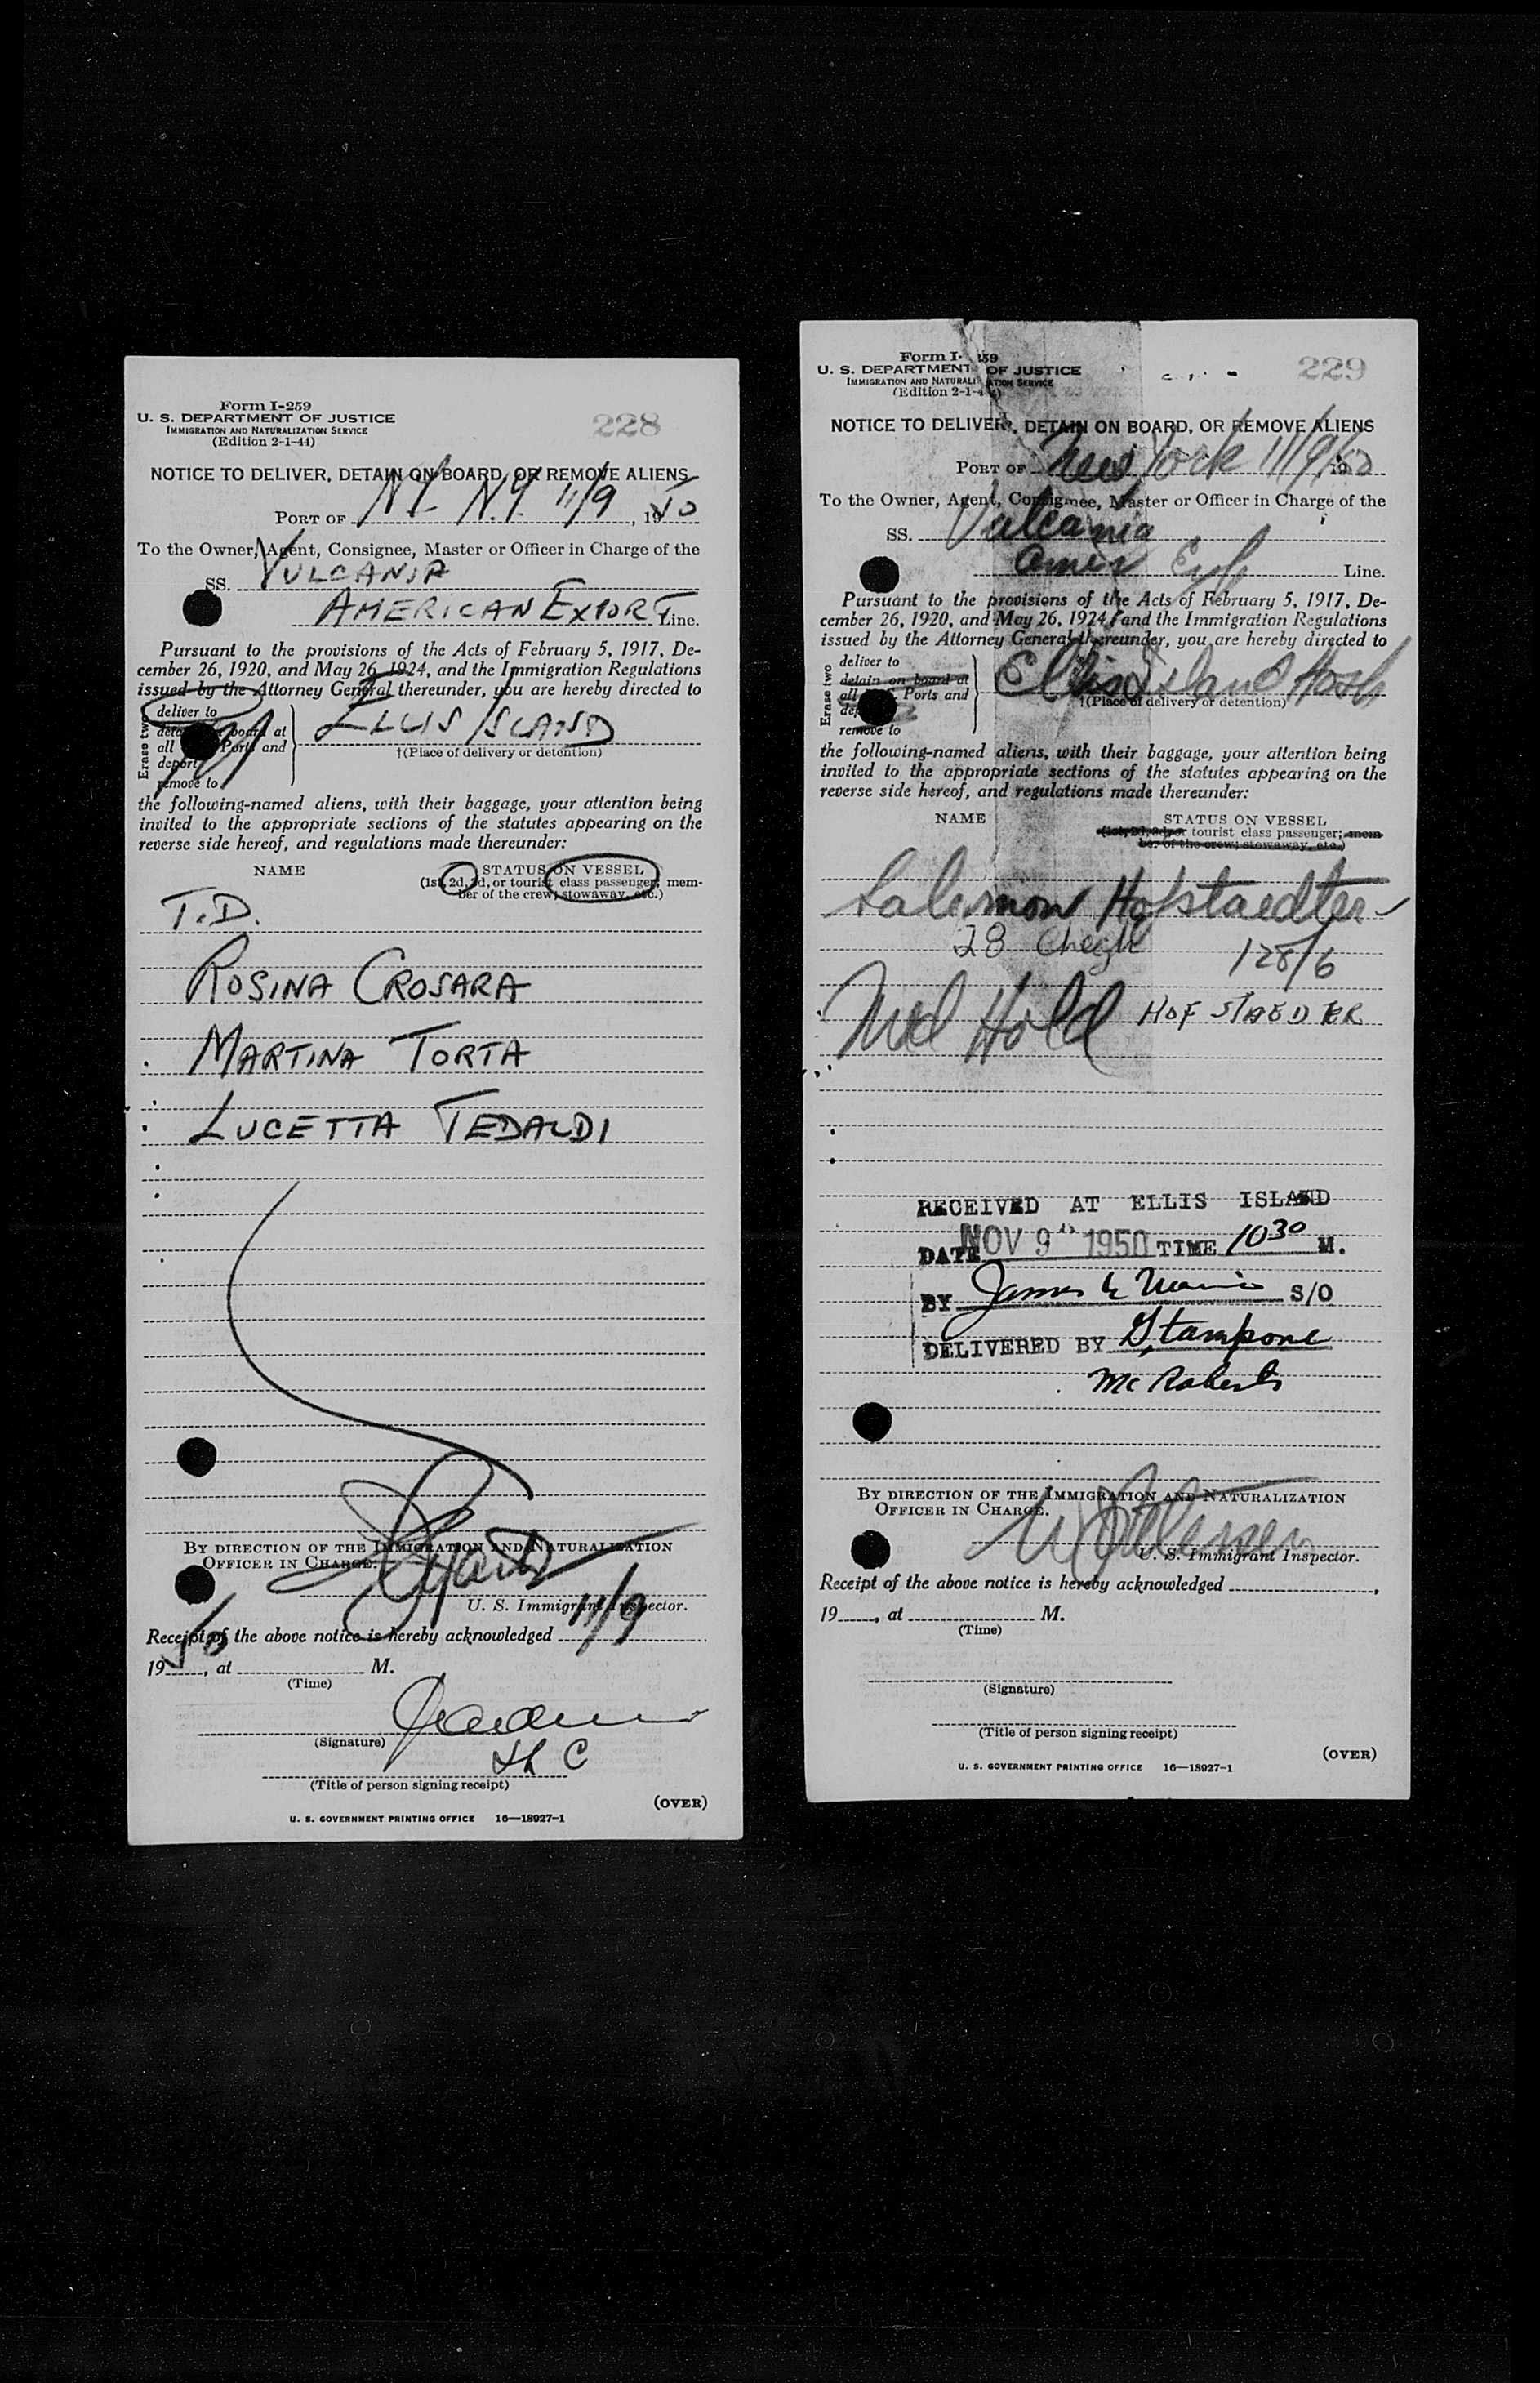 Form I-259
U. S. DEPARTMENT OF JUSTICE
IMMIGRATION AND NATURALIZATION SERVICE
(Edition 2-1-44)
228
NOTICE TO DELIVER, DETAIN ON BOARD, OR REMOVE ALIENS
PORT OF N.Y. N.Y. 11/9, 1950
To the Owner, Agent, Consignee, Master or Officer in Charge of the
SS. VULCANIA
AMERICAN EXPORT Line.
Pursuant to the provisions of the Acts of February 5, 1917, De-
cember 26, 1920, and May 26, 1924, and the Immigration Regulations
issued by the Attorney General thereunder, you are hereby directed to
Erase two
deliver to
board at
all Ports and
deport
remove to
ELLIS ISLAND
†(Place of delivery or detention)
the following-named aliens, with their baggage, your attention being
invited to the appropriate sections of the statutes appearing on the
reverse side hereof, and regulations made thereunder:
NAME STATUS ON VESSEL
(1st, 2d, 3d, or tourist class passenger; mem-
ber of the crew; stowaway, etc.)
T.D.
ROSINA CROSARA
MARTINA TORTA
LUCETTA TEDALDI
BY DIRECTION OF THE IMMIGRATION AND NATURALIZATION
OFFICER IN CHARGE.
U. S. Immigrant Inspector.
Receipt of the above notice is hereby acknowledged 11/9
1950, at M.
(Time)
(Signature)
(Title of person signing receipt)
(OVER)
U. S. GOVERNMENT PRINTING OFFICE 16—18927-1
Form I-259
U. S. DEPARTMENT OF JUSTICE
IMMIGRATION AND NATURALIZATION SERVICE
(Edition 2-1-44)
229
NOTICE TO DELIVER, DETAIN ON BOARD, OR REMOVE ALIENS
PORT OF New York 11/9/1950
To the Owner, Agent, Consignee, Master or Officer in Charge of the
SS. Vulcania
Amer Exp Line.
Pursuant to the provisions of the Acts of February 5, 1917, De-
cember 26, 1920, and May 26, 1924, and the Immigration Regulations
issued by the Attorney General thereunder, you are hereby directed to
Erase two
deliver to
detain on board at
all Ports and
remove to
Ellis Island Hosp
†(Place of delivery or detention)
the following-named aliens, with their baggage, your attention being
invited to the appropriate sections of the statutes appearing on the
reverse side hereof, and regulations made thereunder:
NAME STATUS ON VESSEL
(1st, 2d, 3d, or tourist class passenger; mem-
ber of the crew; stowaway, etc.)
Salomon Hofstaedter
28 Chezk 128/6
Med Hold HOFSTAEDTER
RECEIVED AT ELLIS ISLAND
DATE NOV 9 1950 TIME 10 30 M.
BY James S/O
DELIVERED BY Stampone
McRoberts
BY DIRECTION OF THE IMMIGRATION AND NATURALIZATION
OFFICER IN CHARGE.
U. S. Immigrant Inspector.
Receipt of the above notice is hereby acknowledged
19, at M.
(Time)
(Signature)
(Title of person signing receipt)
(OVER)
U. S. GOVERNMENT PRINTING OFFICE 16—18927-1